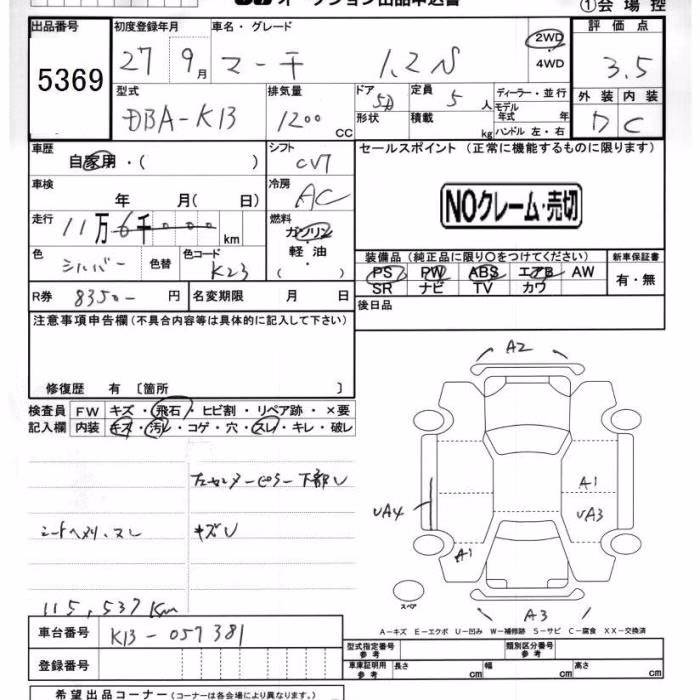 オークション出品申込書
①会場控
出品番号 初度登録年月 車名・グレード 2WD 評価点
5369 27 9月 マーチ 1.2S 4WD 3.5
型式 排気量 ドア 定員 ディーラー・並行 外装 内装
DBA-K13 1200 CC 5D 5人 モデル年式 年式 D C
形状 積載 kg ハンドル 左・右
車歴 シフト セールスポイント (正常に機能するものに限ります)
自家用・( ) CVT
車検 冷房 NOクレーム・売切
年 月( 日) AC
走行 燃料
11万6千000km ガソリン
色 色替 色コード 軽油 装備品 (純正品に限り〇をつけてください) 新車保証書
シルバー K23 ( ・ ) PS PW ABS エアB AW 有・無
SR ナビ TV カワ
R券 8350- 円 名変期限 月 日 後日品
注意事項申告欄 (不具合内容等は具体的に記入して下さい)
修復歴 有 〔箇所 〕
検査員 FW キズ・飛石・ヒビ割・リペア跡・×要
記入欄 内装 キズ・汚レ・コゲ・穴・スレ・キレ・破レ
左センターピラー下部U
シートヘタリ、スレ キズU
115,537Km
A2
A1
UA4 UA3
A1
スペア
A3
A-キズ E-エクボ U-凹み W-補修跡 S-サビ C-腐食 XX-交換済
車台番号 K13-057381
型式指定番号 参考 類別区分番号 参考
登録番号 車庫証明用 参考 長さ cm 幅 cm 高さ cm
希望出品コーナー (コーナーは各会場により異なります。)